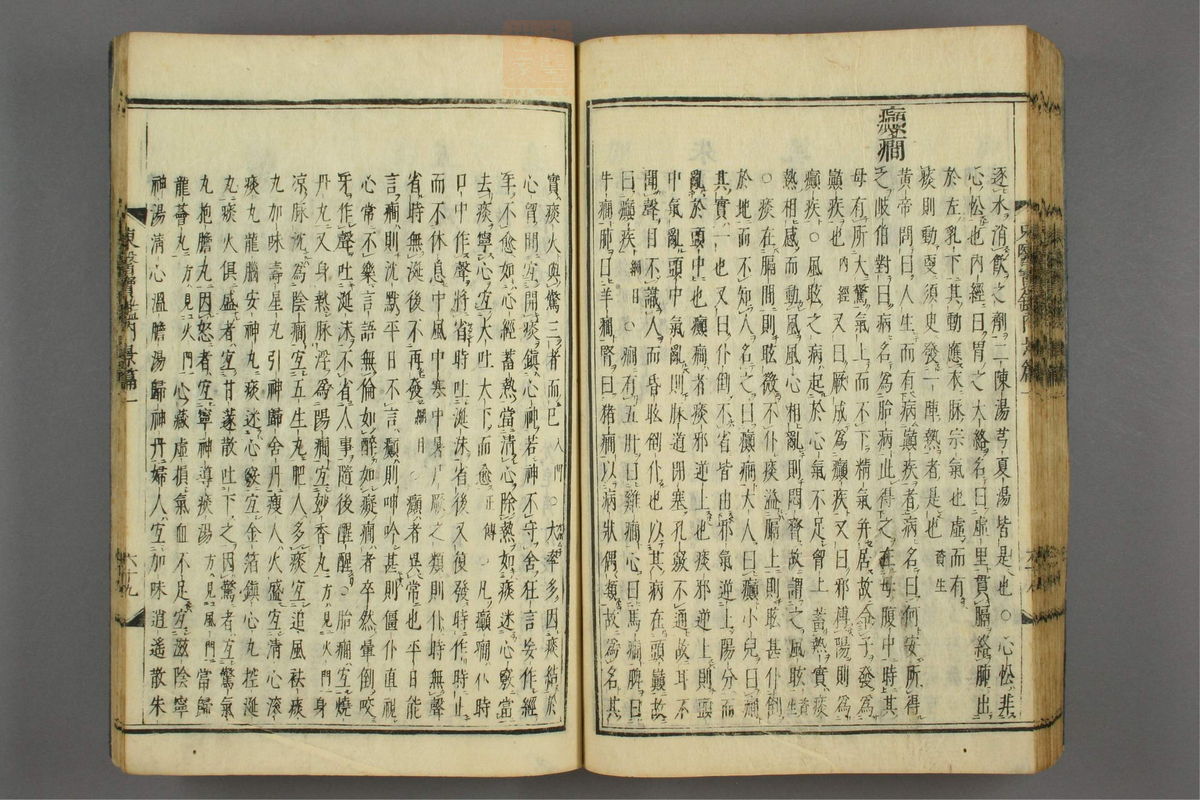 逐水消飲之劑二陳湯芎夏湯皆是也○心忪非
心忪也內經曰胃之大絡名曰虛里貫膈絡肺出
於左乳下其動應衣脉宗氣也虛而有
痰則動更須臾發一陣熱者是也 資生
癲癎
黄帝問曰人生而有病癲疾者病名曰何安所得
之歧伯對曰病名爲胎病此得之在母腹中時其
母有所大驚氣上而不下精氣并居故令子發爲
癲疾也 內經 又曰厥成爲癲疾又曰邪搏陽則爲
癲疾○風眩之病起於心氣不足胸上蓄熱實痰
熱相感而動風風心相亂則悶瞀故謂之風眩 資生
○痰在膈間則眩微不仆痰溢膈上則眩甚仆倒
於地而不知人名之曰癲癎大人曰癲小兒曰癎
其實一也又曰仆倒不省皆由邪氣逆上陽分而
亂於頭中也癲癎者痰邪逆上也痰邪逆上則頭
中氣亂頭中氣亂則脉道閉塞孔竅不通故耳不
聞聲目不識人而昏眩倒仆也以其病在頭巓故
曰癲疾 綱目 ○癎有五肝曰雞癎心曰馬癎脾曰
牛癎肺曰羊癎腎曰猪癎以病狀偶類故爲名其
東醫寶鑑內景篇一
實痰火與驚三者而已 入門 ○大率多因痰結於
心胸間宜開痰鎮心神若神不守舍狂言妄作經
年不愈如心經蓄熱當淸心除熱如痰迷心竅當
去痰寧心宜大吐大下而愈 正傳 ○凡癲癎仆時
口中作聲將省時吐涎沫省後又復發時作時止
而不休息中風中寒中暑尸厥之類則仆時無聲
省時無涎後不再發 綱目 ○癲者異常也平日能
言癎則沈默平日不言癲則呻吟甚則僵仆直視
心常不樂言語無倫如醉如癡癎者卒然暈倒咬
牙作聲吐涎沫不省人事隨後醒醒○胎癎宜燒
丹丸又身熱脉浮爲陽癎宜妙香丸 方見火門 身
凉脉沈爲陰癎宜五生丸肥人多痰宜追風袪痰
丸加味壽星丸引神歸舍丹瘦人火盛宜淸心滾
痰丸龍腦安神丸痰迷心竅宜金箔鎮心丸控涎
丸痰火俱盛者宜甘遂散吐下之因驚者宜驚氣
丸抱膽丸因怒者宜寧神導痰湯 方見風門 當歸
龍薈丸 方見火門 心藏虛損氣血不足宜滋陰寧
神湯淸心溫膽湯歸神丹婦人宜加味逍遙散朱
東醫寶鑑內景篇一
六十九